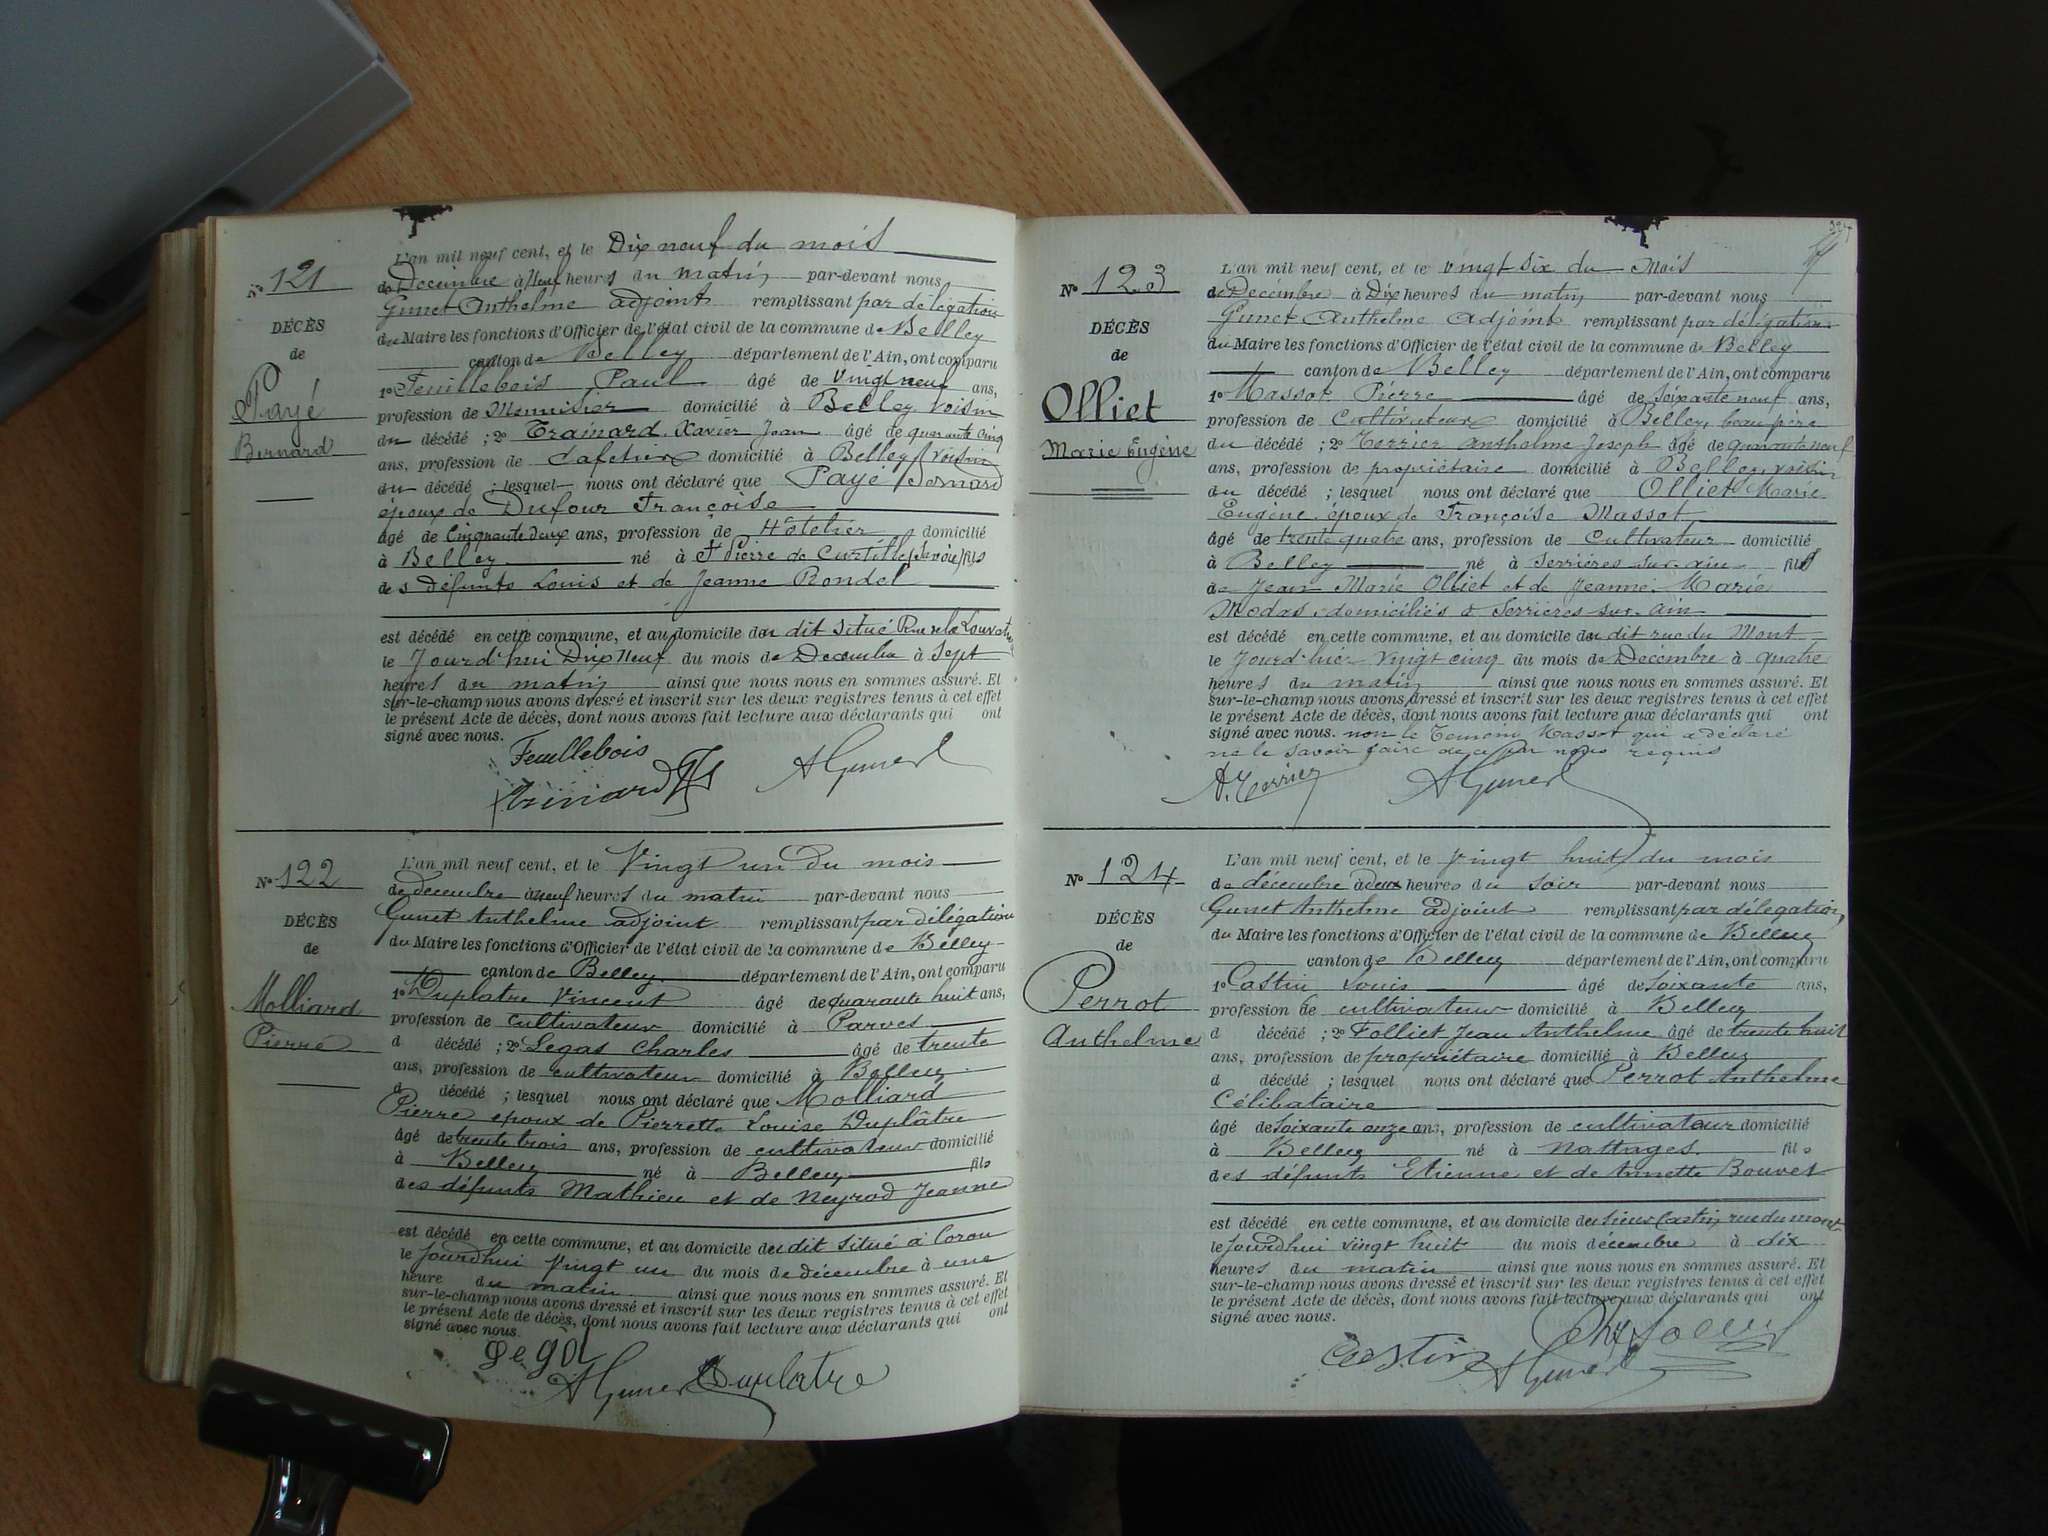 N° 121
DÉCÈS
de
Payé
Bernard
L'an mil neuf cent, et le Dix neuf du mois
de Decembre à Neuf heures du matin par-devant nous
Gunet Anthelme adjoint remplissant par délégation
du Maire les fonctions d'Officier de l'état civil de la commune de Belley
canton de Belley département de l'Ain, ont comparu
1° Feuillebois Paul âgé de vingt neuf ans,
profession de Menuisier domicilié à Belley voisin
du décédé ; 2° Trainard Xavier Jean âgé de quarante cinq
ans, profession de Cafetier domicilié à Belley voisin
du décédé ; lesquel nous ont déclaré que Payé Bernard
époux de Dufour Françoise
âgé de Cinquante deux ans, profession de Hôtelier domicilié
à Belley né à St Pierre de Curtille (Savoie) fils
des défunts Louis et de Jeanne Rondel
est décédé en cette commune, et au domicile du dit situé Rue de la
le Jourd'hui Dix Neuf du mois de Decembre à Sept
heures du matin ainsi que nous nous en sommes assuré. Et
sur-le-champ nous avons dressé et inscrit sur les deux registres tenus à cet effet
le présent Acte de décès, dont nous avons fait lecture aux déclarants qui ont
signé avec nous.
Feuillebois
Trinard AGunet
N° 122
DÉCÈS
de
Molliard
Pierre
L'an mil neuf cent, et le Vingt un du mois
de decembre à neuf heures du matin par-devant nous
Gunet Anthelme adjoint remplissant par délégation
du Maire les fonctions d'Officier de l'état civil de la commune de Belley
canton de Belley département de l'Ain, ont comparu
1° Duplatre Vincent âgé de quarante huit ans,
profession de cultivateur domicilié à Parves
d décédé ; 2° Legas Charles âgé de trente
ans, profession de cultivateur domicilié à Belley
d décédé ; lesquel nous ont déclaré que Molliard
Pierre epoux de Pierrette Louise Duplâtre
âgé de trente trois ans, profession de cultivateur domicilié
à Belley né à Belley fils
des défunts Mathieu et de Neyrod Jeanne
est décédé en cette commune, et au domicile du dit situé à Coron
le jourdhui vingt un du mois de décembre à une
heure du matin ainsi que nous nous en sommes assuré. Et
sur-le-champ nous avons dressé et inscrit sur les deux registres tenus à cet effet
le présent Acte de décès, dont nous avons fait lecture aux déclarants qui ont
signé avec nous.
AGunet Duplatre
N° 123
DÉCÈS
de
Olliet
Marie Eugène
L'an mil neuf cent, et le vingt six du Mois
de Decémbre à Dix heures du matin par-devant nous
Gunet Anthelme Adjoint remplissant par délégation
du Maire les fonctions d'Officier de l'état civil de la commune de Belley
canton de Belley département de l'Ain, ont comparu
1° Massot Pierre âgé de soixante neuf ans,
profession de Cultivateur domicilié à Belley, beau père
du décédé ; 2° Terrier Anthelme Joseph âgé de quarante neuf
ans, profession de propriétaire domicilié à Belley voisin
du décédé ; lesquel nous ont déclaré que Olliet Marie
Eugène époux de Françoise Massot
âgé de trente quatre ans, profession de Cultivateur domicilié
à Belley né à Serrières sur ain fils
de Jean Marie Olliet et de Jeanne Marie
Modas, domiciliés à Serrières sur ain
est décédé en cette commune, et au domicile du dit rue du Mont
le Jourd'hier vingt cinq du mois de Decémbre à quatre
heures du matin ainsi que nous nous en sommes assuré. Et
sur-le-champ nous avons dressé et inscrit sur les deux registres tenus à cet effet
le présent Acte de décès, dont nous avons fait lecture aux déclarants qui ont
signé avec nous. non le Temoin Massot qui a déclaré
ne le savoir faire de ce par nous requis
A. Terrier AGunet
N° 124
DÉCÈS
de
Perrot
Anthelme
L'an mil neuf cent, et le Vingt huit du mois
de décembre à deux heures du soir par-devant nous
Gunet Anthelme adjoint remplissant par délégation
du Maire les fonctions d'Officier de l'état civil de la commune de Belley
canton de Belley département de l'Ain, ont comparu
1° Castin Louis âgé de soixante ans,
profession de cultivateur domicilié à Belley
d décédé ; 2° Folliet Jean Anthelme âgé de trente huit
ans, profession de propriétaire domicilié à Belley
d décédé ; lesquel nous ont déclaré que Perrot Anthelme
Célibataire
âgé de soixante onze ans, profession de cultivateur domicilié
à Belley né à Nattages fils
des défunts Etienne et de Annette Bouvet
est décédé en cette commune, et au domicile du sieur Castin, rue du mont
le jourdhui vingt huit du mois décembre à dix
heures du matin ainsi que nous nous en sommes assuré. Et
sur-le-champ nous avons dressé et inscrit sur les deux registres tenus à cet effet
le présent Acte de décès, dont nous avons fait lecture aux déclarants qui ont
signé avec nous.
Castin AGunet